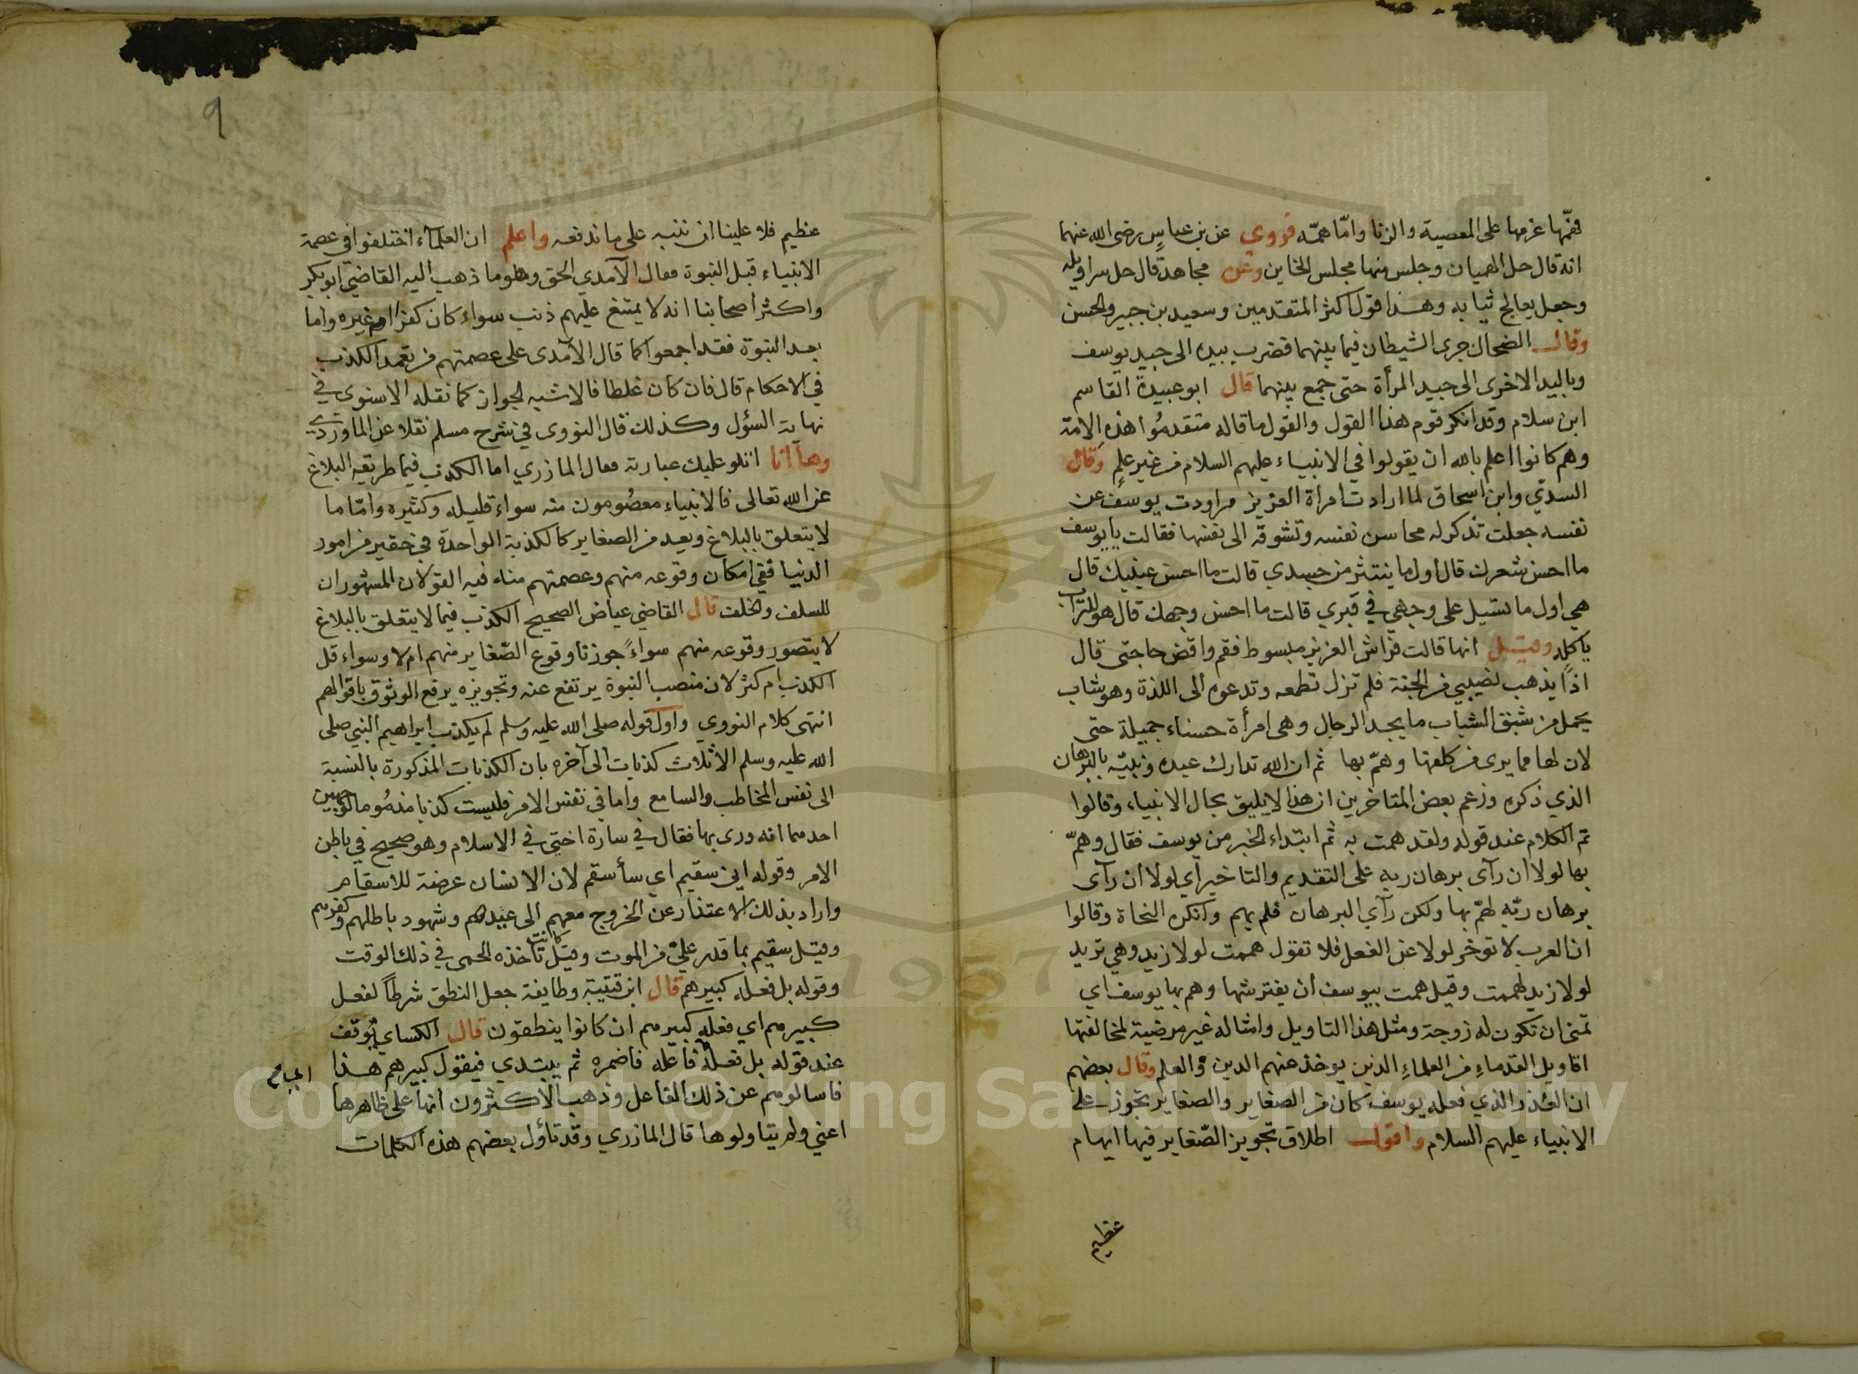 فهمّها عزمها على المعصية والزنا وامّا همّه فروي عن بن عباس رضى الله عنهما
انه قال حل الهميان وجلس منها مجلس الخاين وعن مجاهد قال حل سراويله
وجعل يعالج ثيابه وهذا قول اكثر المتقدمين وسعيد بن جبير والحسن
وقال الضحاك جرى الشيطان فيما بينهما فضرب بيده الى جيد يوسف
وباليد الاخرى الى جيد المرأة حتى جمع بينهما قال ابو عبيدة القاسم
ابن سلام وقد انكر قوم هذا القول والقول ما قاله متقدمُوا هذه الامّة
وهم كانوا اعلم بالله ان يقولوا في الانبياء عليهم السلام من غير علمٍ وقال
السدّي وابن اسحاق لما ارادت امرأة العزيز مراودت يوسف عن
نفسه جعلت تذكر له محاسن نفسه وتشوقه الى نفسها فقالت يا يوسف
ما احسن شعرك قال اول ما ينتثر من جسدي قالت ما احسن عينيك قال
هي اول ما تسيل على وجهي في قبري قالت ما احسن وجهك قال هو للتراب
ياكله وقيل انها قالت فراش العزيز مبسوط فقم واقض حاجتي قال
اذًا يذهب نصيبي من الجنة فلم تزل تطمعه وتدعوه الى اللذة وهو شاب
يحمل من شبق الشباب ما يجد الرجال وهى امرأة حسناء جميلة حتى
لان لها مما يرى من كلفها وهمّ بها ثم ان الله تدارك عبده ونبيّه بالبرهان
الذي ذكره وزعم بعض المتاخرين ان هذا لا يليق بحال الانبياء وقالوا
تم الكلام عند قوله ولقد همت به ثم ابتداء الخبر من يوسف فقال وهمّ
بها لولا ان رآى برهان ربه على التقديم والتاخير اي لولا ان رآى
برهان ربّه لهمّ بها ولكن رآي البرهان فلم يهم وانكره النحاة وقالوا
ان العرب لا توخر لولا عن الفعل فلا تقول هممت لولا زيد وهي تريد
لولا زيد لهممت وقيل همت بيوسف ان يفترشها وهم بها يوسف اي
تمنى ان تكون له زوجة ومثل هذا التاويل وامثاله غير مرضية لمخالفتها
اقاويل القدماء من العلماء الذين يوخذ عنهم الدين والعلم وقال بعضهم
ان القدر الذي فعله يوسف كان من الصغاير والصغاير تجوز على
الانبياء عليهم السلام واقول اطلاق تجويز الصّغاير فيها ايهام
عظيم
٩
عظيم فلا علينا ان ننبه على ما ندفعه واعلم ان العلماء اختلفوا في عصمة
الانبياء قبل النبوة فقال الآمدي الحق وهو ما ذهب اليه القاضي ابو بكر
واكثر اصحابنا انه لا يمتنع عليهم ذنب سواء كان كفرا او غيره واما
بعد النبوة فقد اجمعوا كما قال الآمدى على عصمتهم من تعمد الكذب
في الاحكام قال فان كان غلطا فالاشبه الجواز كما نقله الاسنوى في
نهاية السؤل وكذلك قال النووى في شرح مسلم نقلا عن الماوردي
وها انا اتلو عليك عبارته فقال المازري اما الكذب فيما طريقه البلاغ
عن الله تعالى فالانبياء معصُومون منه سواء قليله وكثيره وامّا ما
لا يتعلق بالبلاغ ويعد من الصغاير كالكذبة الواحدة في حقير من امور
الدنيا ففي امكان وقوعه منهم وعصمتهم منه فيه القولان المشهوران
للسلف والخلف قال القاضي عياض الصحيح ان الكذب فيما لا يتعلق بالبلاغ
لا يتصور وقوعه منهم سواءً جوزنا وقوع الصّغاير منهم ام لا وسواء قل
الكذب ام كثر لان منصب النبوة يرتفع عنه وتجويزه يرفع الوثوق باقوالهم
انتهى كلام النووي واول قوله صلى الله عليه وسلم لم يكذب ابراهيم النبي صلى
الله عليه وسلم الا ثلاث كذبات الى آخره بان الكذبات المذكورة بالنسبة
الى نفس المخاطب والسامع واما في نفس الامر فليست كذبا مذمُوما لوجهين
احدهما انه ورى بها فقال في سارة اختي في الاسلام وهو صحيح في باطن
الامر وقوله اني سقيم اي سأسقم لان الانسان عرضة للاسقام
واراد بذلك الاعتذار عن الخروج معهم الى عيدهم وشهود باطلهم وكفرهم
وقيل سقيم بما قدر عليّ من الموت وقيل كانت تأخذه الحمى في ذلك الوقت
وقوله بل فعله كبيرهم قال ابن قتيبة وطايفة جعل النطق شرطاً لفعل
كبيرهم اي فعله كبيرهم ان كانوا ينطقون قال الكساي يُوقف
عند قوله بل فعله فاعله فاضمره ثم يبتدي فيقول كبيرهم هذا
فاسالوهم عن ذلك الفاعل وذهب الاكثرون انها على ظاهرها
اعني ولم يتاولوها قال المازري وقد تاؤل بعضهم هذه الكلمات
Copyright © King Saud University
1957